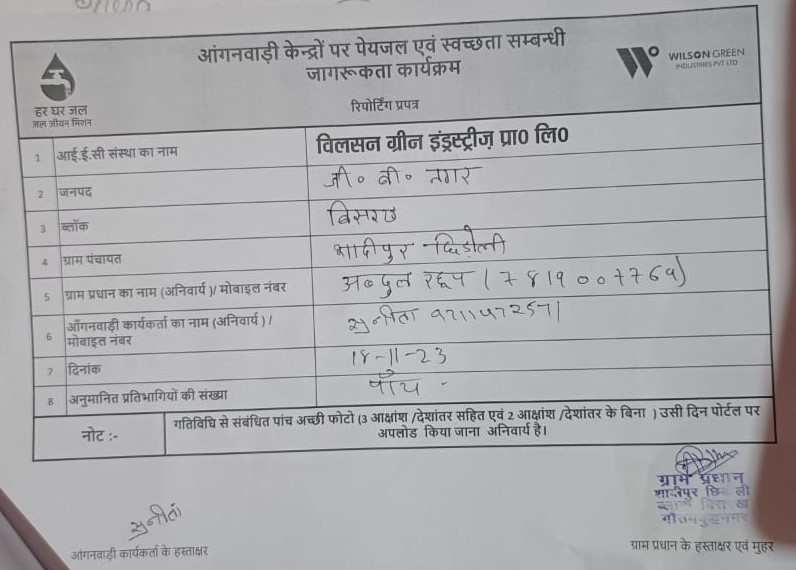 आंगनवाड़ी केन्द्रों पर पेयजल एवं स्वच्छता सम्बन्धी
जागरूकता कार्यक्रम
हर घर जल
जल जीवन मिशन
WILSON GREEN
INDUSTRIES PVT LTD
रिपोर्टिंग प्रपत्र
1 आई.ई.सी संस्था का नाम विलसन ग्रीन इंड्रस्ट्रीज़ प्रा0 लि0
2 जनपद जी० बी० नगर
3 ब्लॉक बिसरख
4 ग्राम पंचायत शादीपुर छिडोली
5 ग्राम प्रधान का नाम (अनिवार्य )/ मोबाइल नंबर अब्दुल (7819007769)
6 आँगनवाड़ी कार्यकर्ता का नाम (अनिवार्य ) /
मोबाइल नंबर सुनीता
7 दिनांक 18-11-23
8 अनुमानित प्रतिभागियों की संख्या पाँच -
नोट :- गतिविधि से संबंधित पांच अच्छी फोटो (3 आक्षांश /देशांतर सहित एवं 2 आक्षांश /देशांतर के बिना ) उसी दिन पोर्टल पर
अपलोड किया जाना अनिवार्य है।
ग्राम प्रधान
शादीपुर
गौतमबुद्धनगर
सुनीता
आंगनवाड़ी कार्यकर्ता के हस्ताक्षर
ग्राम प्रधान के हस्ताक्षर एवं मुहर